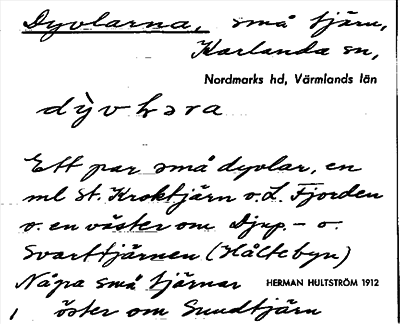 Dyvlarna, små tjärn,
Karlanda sn,
Nordmarks hd, Värmlands län
dỳvhara
Ett par små dyvlar, en
ml St. Kroktjärn o. L. Fjorden
o. en väster om Djup- o.
Svarttjärnen (Håltebyn)
Några små tjärnar
HERMAN HULTSTRÖM 1912
öster om Sundtjärn